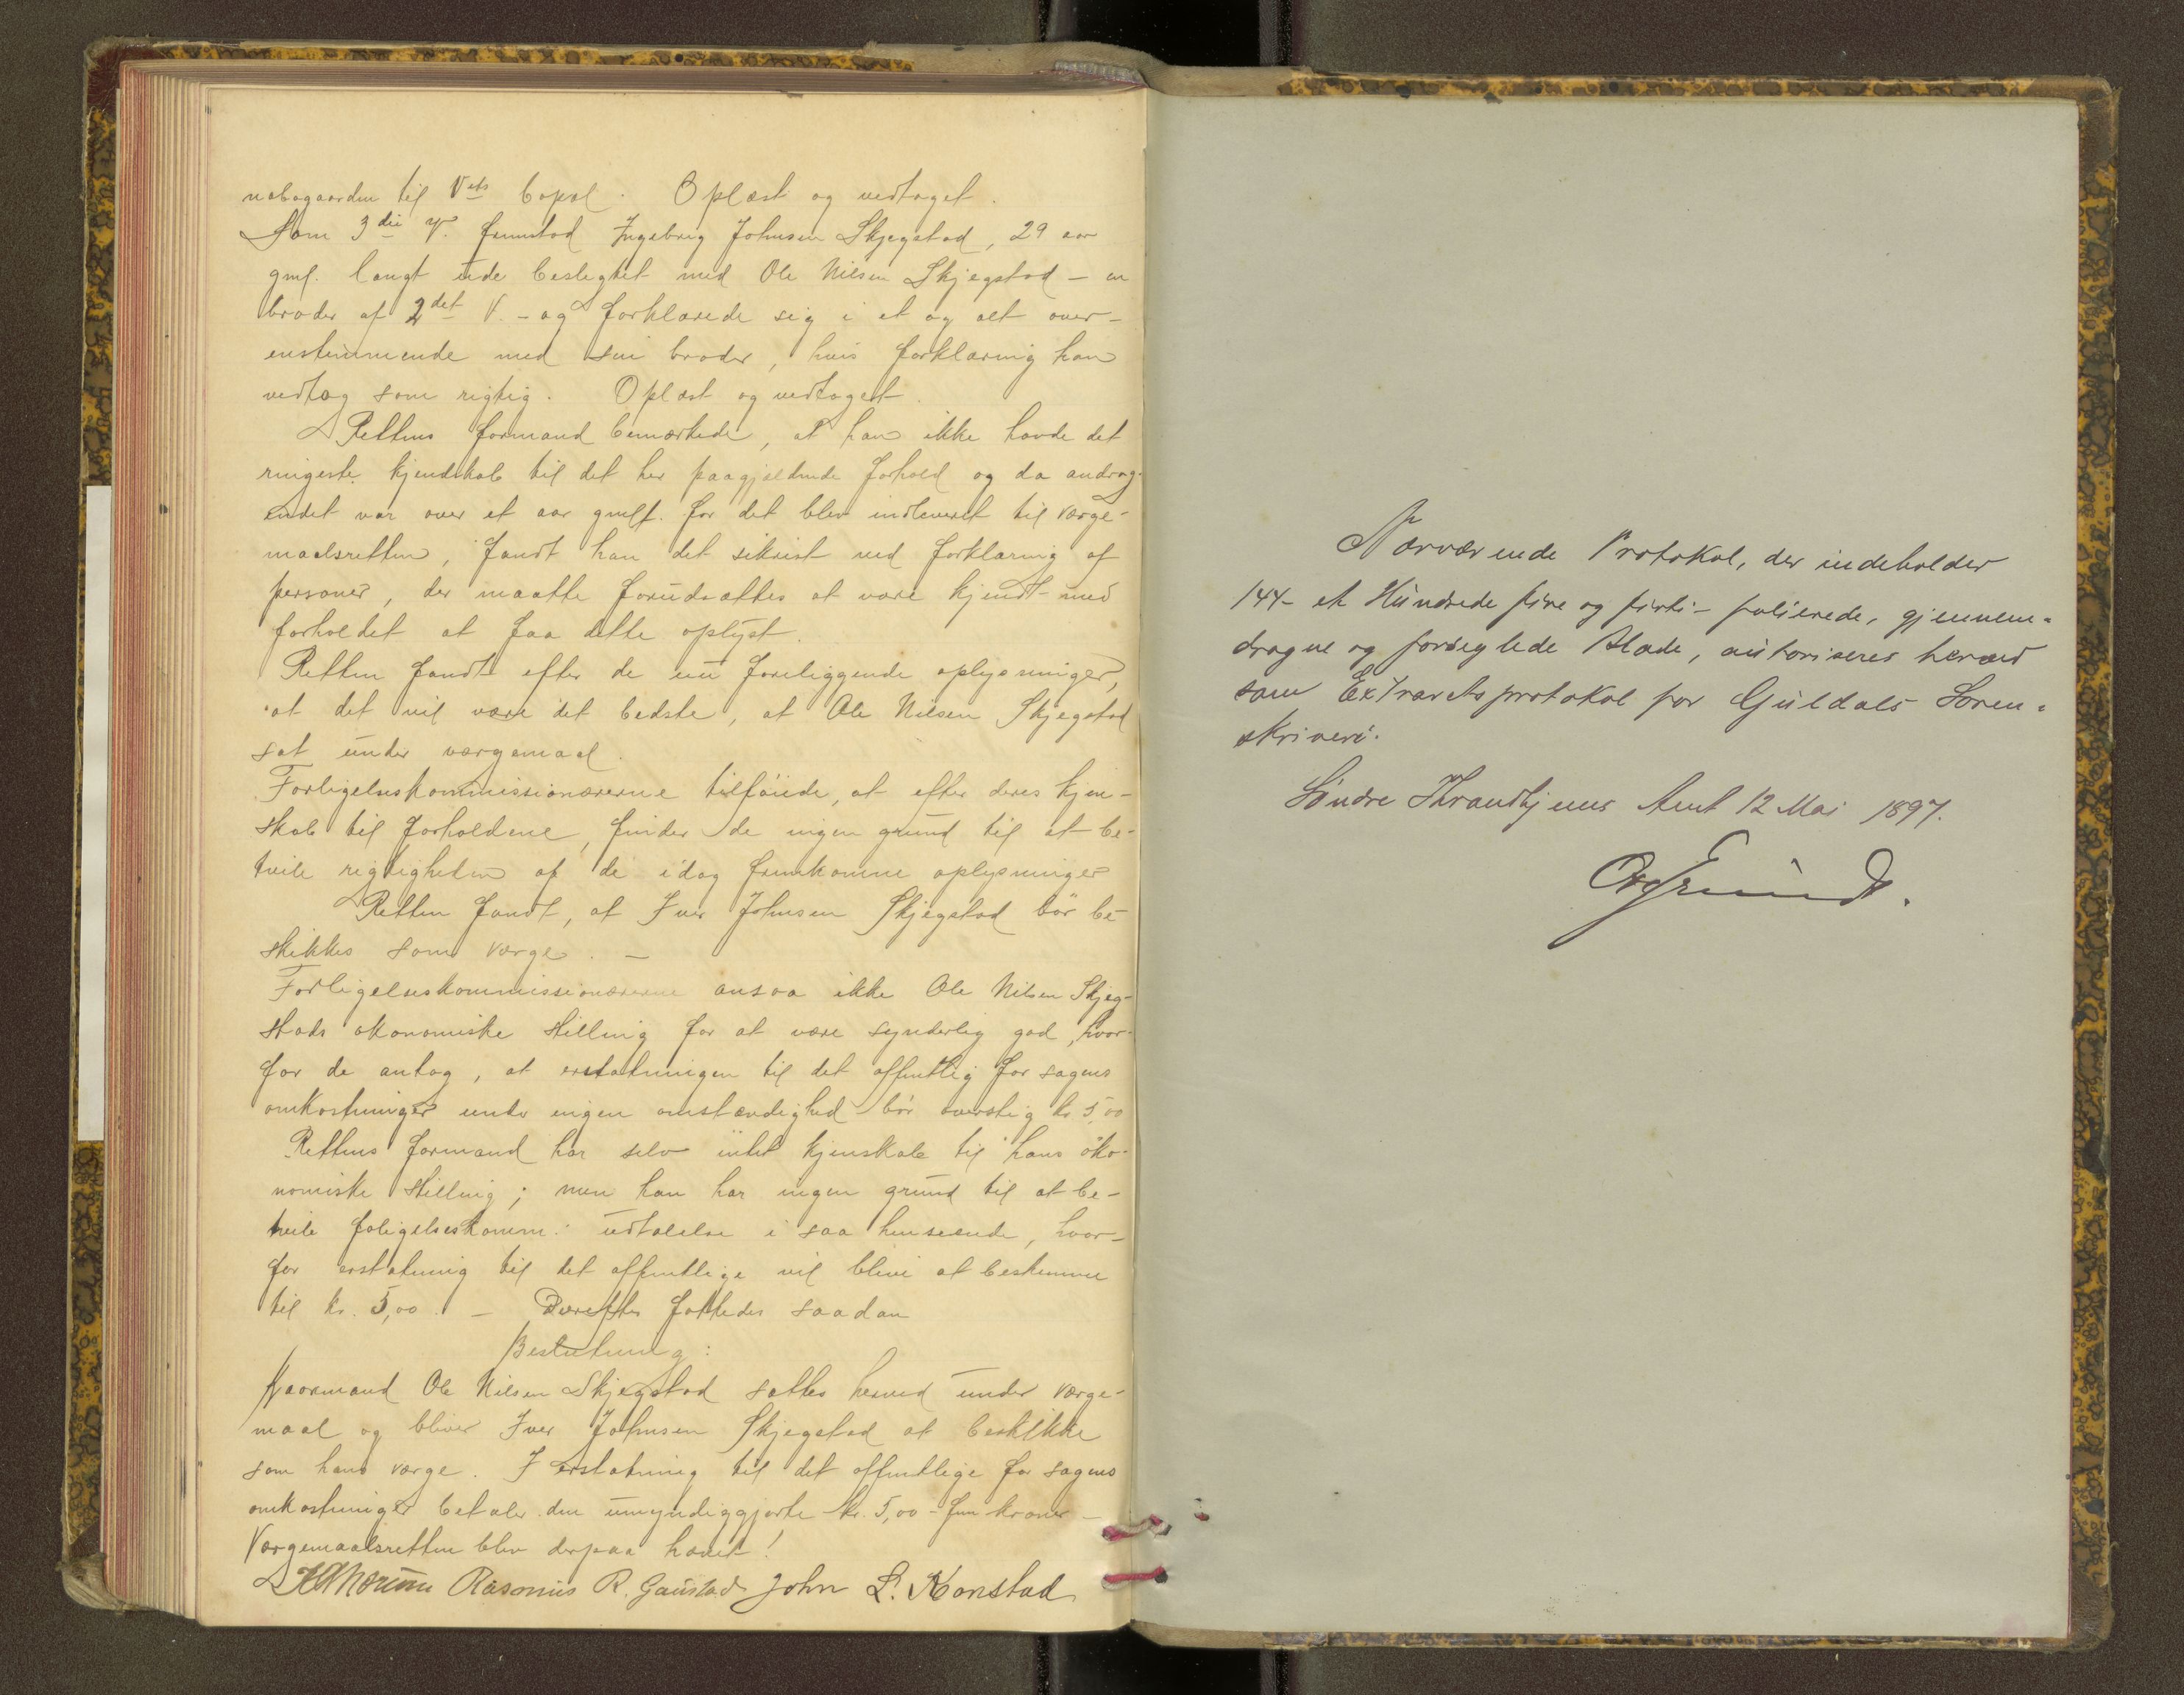 nabogaarden til Vets bopæl. Oplæst og vedtaget.
Som 3die V. fremstod Ingebrig Johnsen Skjegstad, 29 aar
gml. langt ude beslegtet med Ole Nilsen Skjegstad – en
broder af 2det V. – og forklarede sig i et og alt over-
enstemmende med sin broder, hvis forklaring han
vedtog som rigtig. Oplæst og vedtaget.
Rettens formand bemærkede, at han ikke havde det
ringeste kjendskab til det her paagjældende forhold og da andrag-
endet var over et aar gmlt. før det blev indleveret til værge-
maalsretten, fandt han det sikrist ved forklaring af
personer, der maatte forudsættes at være kjendt med
forholdet at faa dette oplyst.
Retten fandt efter de nu foreliggende oplysninger,
at det vil være det bedste, at Ole Nilsen Skjegstad
sat under værgemaal.
Forligelseskommissionærerne tilføiede, at efter deres kjen-
skab til forholdene, finder de ingen grund til at be-
tvile rigtigheden af de idag fremkomne oplysninger
Retten fandt, at Iver Johnsen Skjegstad bør be-
skikkes som værge. –
Forligelseskommissionærerne ansaa ikke Ole Nilsen Skjeg-
stads økonomiske stilling for at være synderlig god, hvor-
for de antog, at erstatningen til det offentlig for sagens
omkostninger under ingen omstændighed bör overstig kr. 5,00
Rettens formand har selv intet kjenskab til hans öko-
nomiske stilling; men han har ingen grund til at be-
tvile foligelseskomm: udtalelse i saa henseende, hvor-
for erstatning til det offentlige vil blive at bestemme
til kr. 5,00. – Derefter fattedes saadan
Beslutning:
Kaarmand Ole Nilsen Skjegstad sættes herved under værge-
maal og bliver Iver Johnsen Skjegstad at beskikke
som hans værge. I erstatning til det offentlige for sagens
omkostninger betaler den umyndiggjorte kr. 5,00 – fem kroner –
Værgemaalsretten blev derpaa hævet!
Rasmus R. Gaustad John L. Konstad
Nærværende Protokol, der indeholder
144 – et Hundrede fire og firti – folierede, gjennem-
dragne og forseglede Blade, autoriseres herved
som Extraretsprotokol for Guldals Soren-
skriveri.
Söndre Thrandhjems Amt 12 Mai 1897.